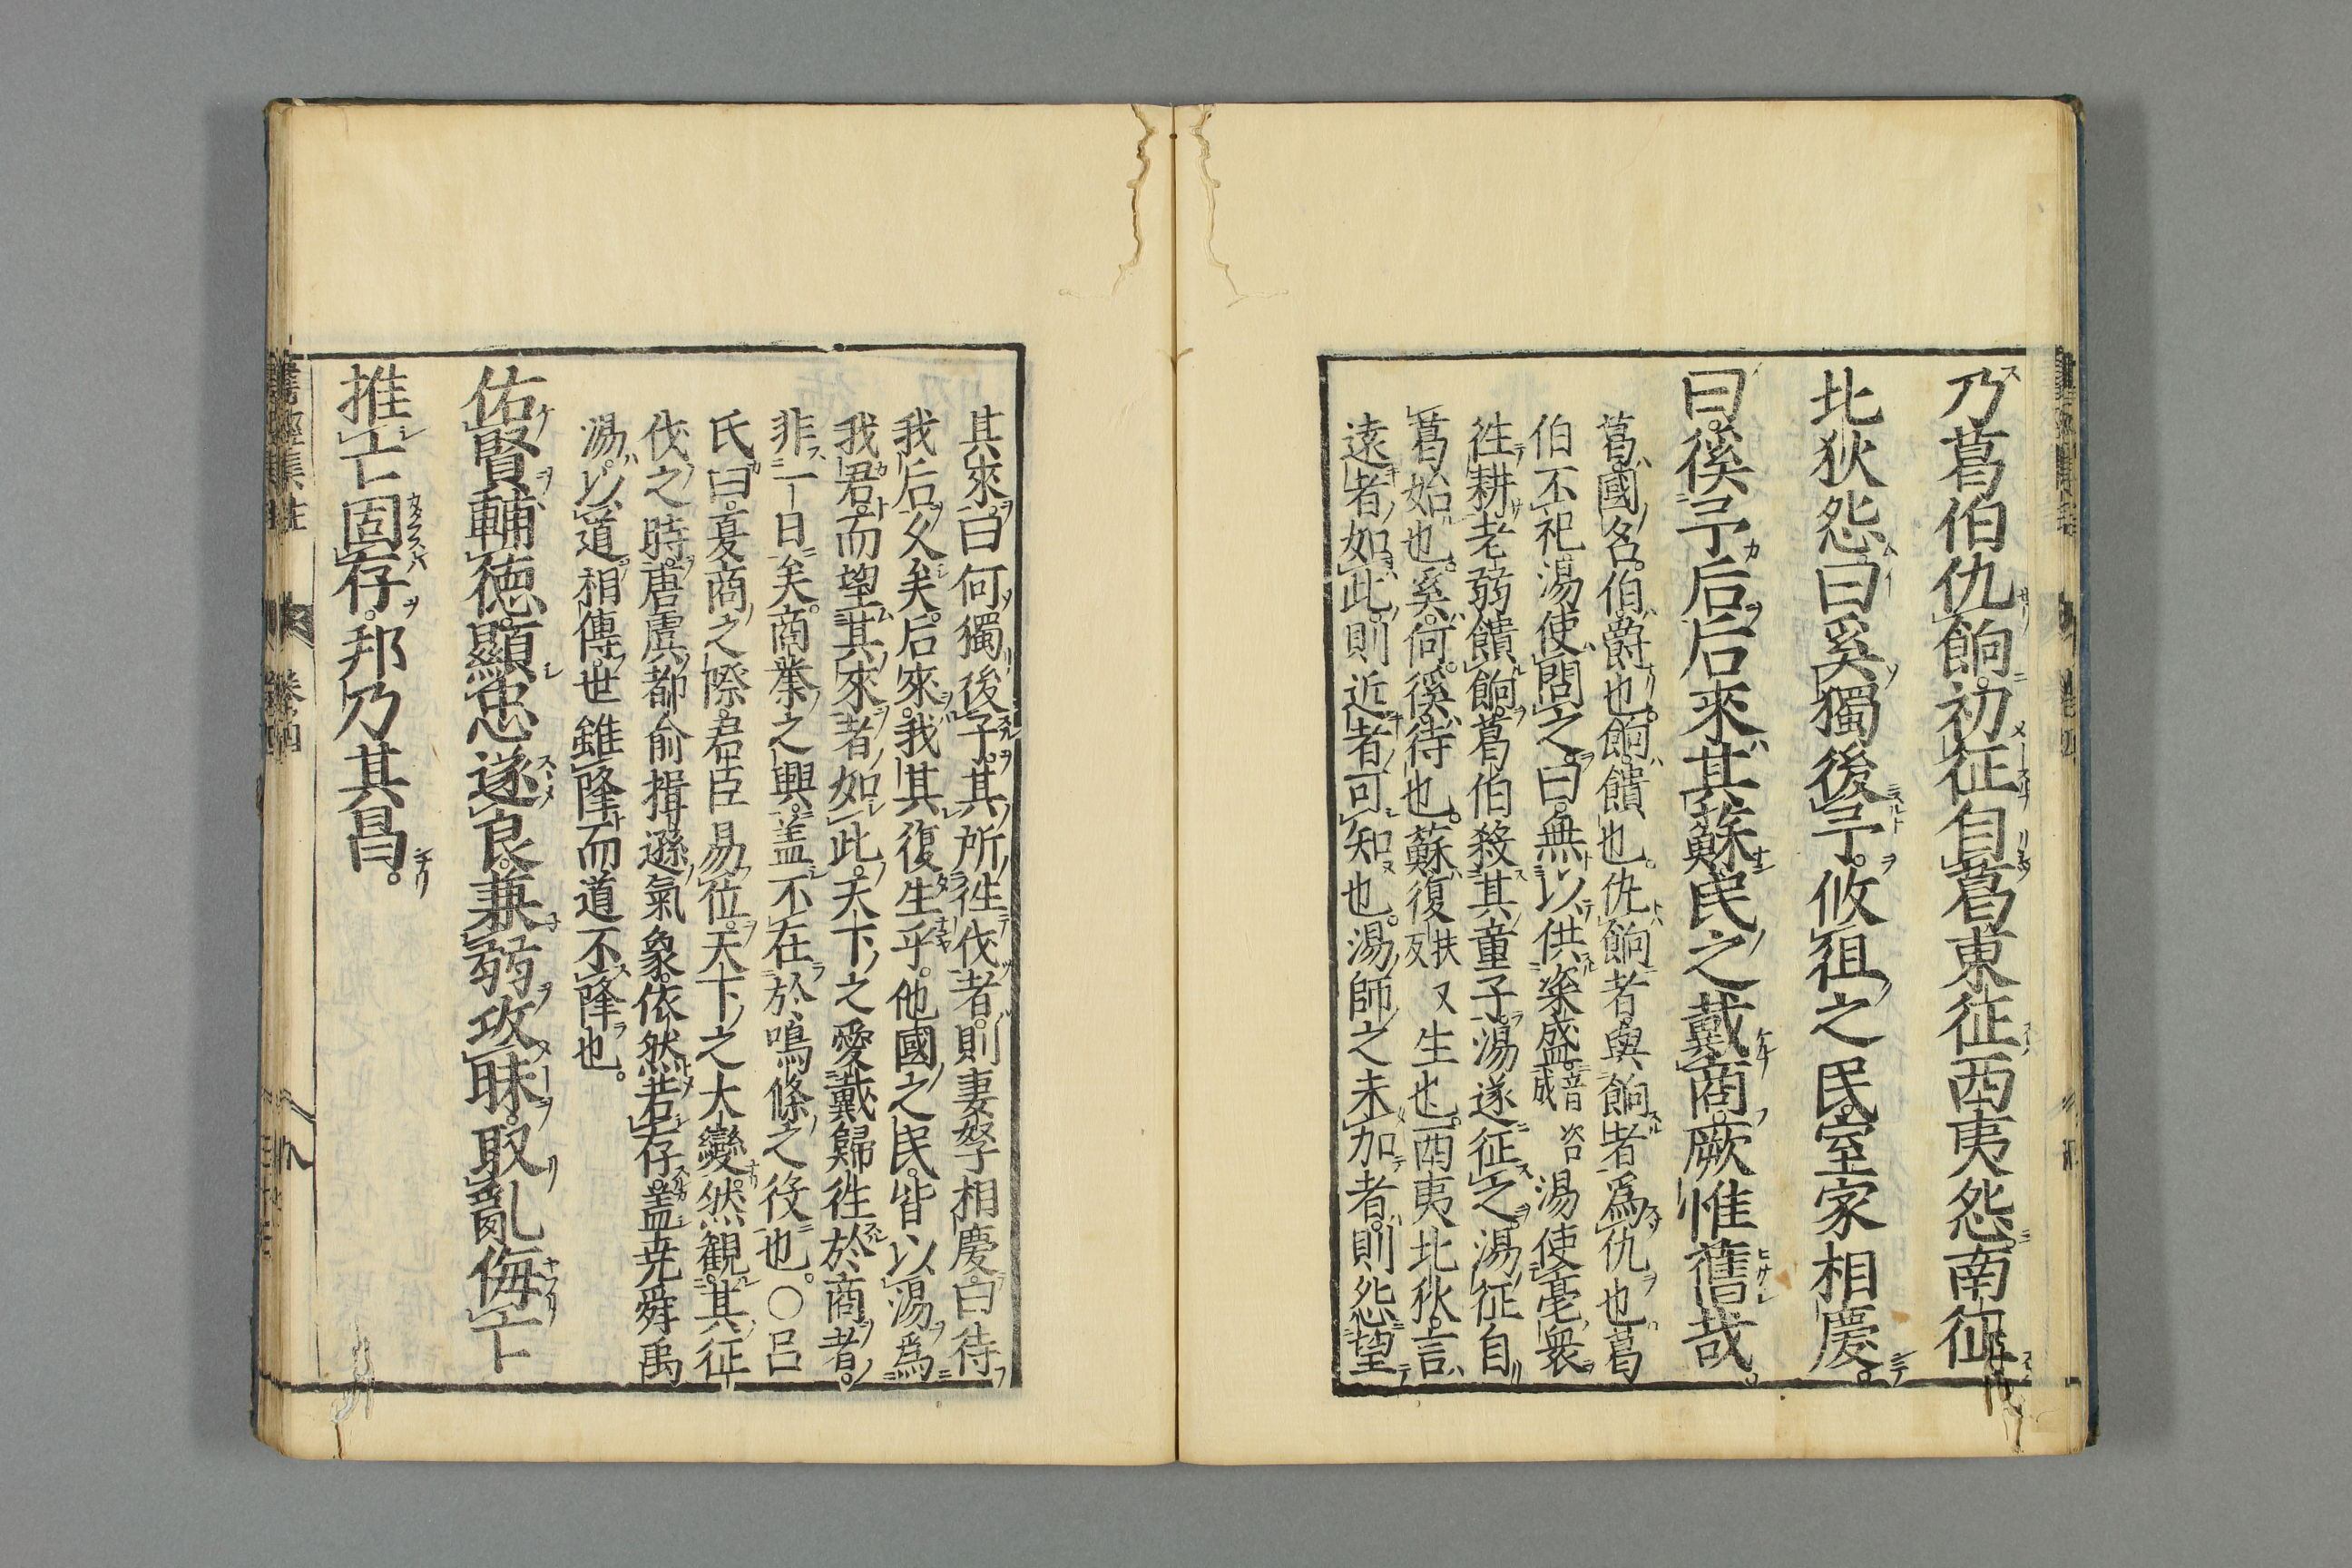 乃葛伯仇餉初征自葛東征西夷怨南征
北狄怨曰奚獨後予攸徂之民室家相慶
曰徯予后后來其蘇民之戴商厥惟舊哉
葛國名伯爵也餉饋也仇餉者與餉者爲仇也葛
伯不祀湯使問之曰無以供粢盛音咨成湯使亳衆
徃耕老弱饋餉葛伯殺其童子湯遂征之湯征自
葛始也奚何徯待也蘇復扶又反生也西夷北狄言
遠者如此則近者可知也湯師之未加者則怨望
其來曰何獨後予其所徃伐者則妻孥相慶曰待
我后久矣后來我其復生乎他國之民皆以湯爲
我君而望其來者如此天下之愛戴歸徃於商者
非一日矣商業之興盖不在於鳴條之役也○呂
氏曰夏商之際君臣易位天下之大變然觀其征
伐之時唐虞都俞揖遜氣象依然若存盖尭舜禹
湯以道相傳世雖降而道不降也
佑賢輔德顯忠遂良兼弱攻昧取亂侮亡
推亡固存邦乃其昌
書經集註 卷四 九